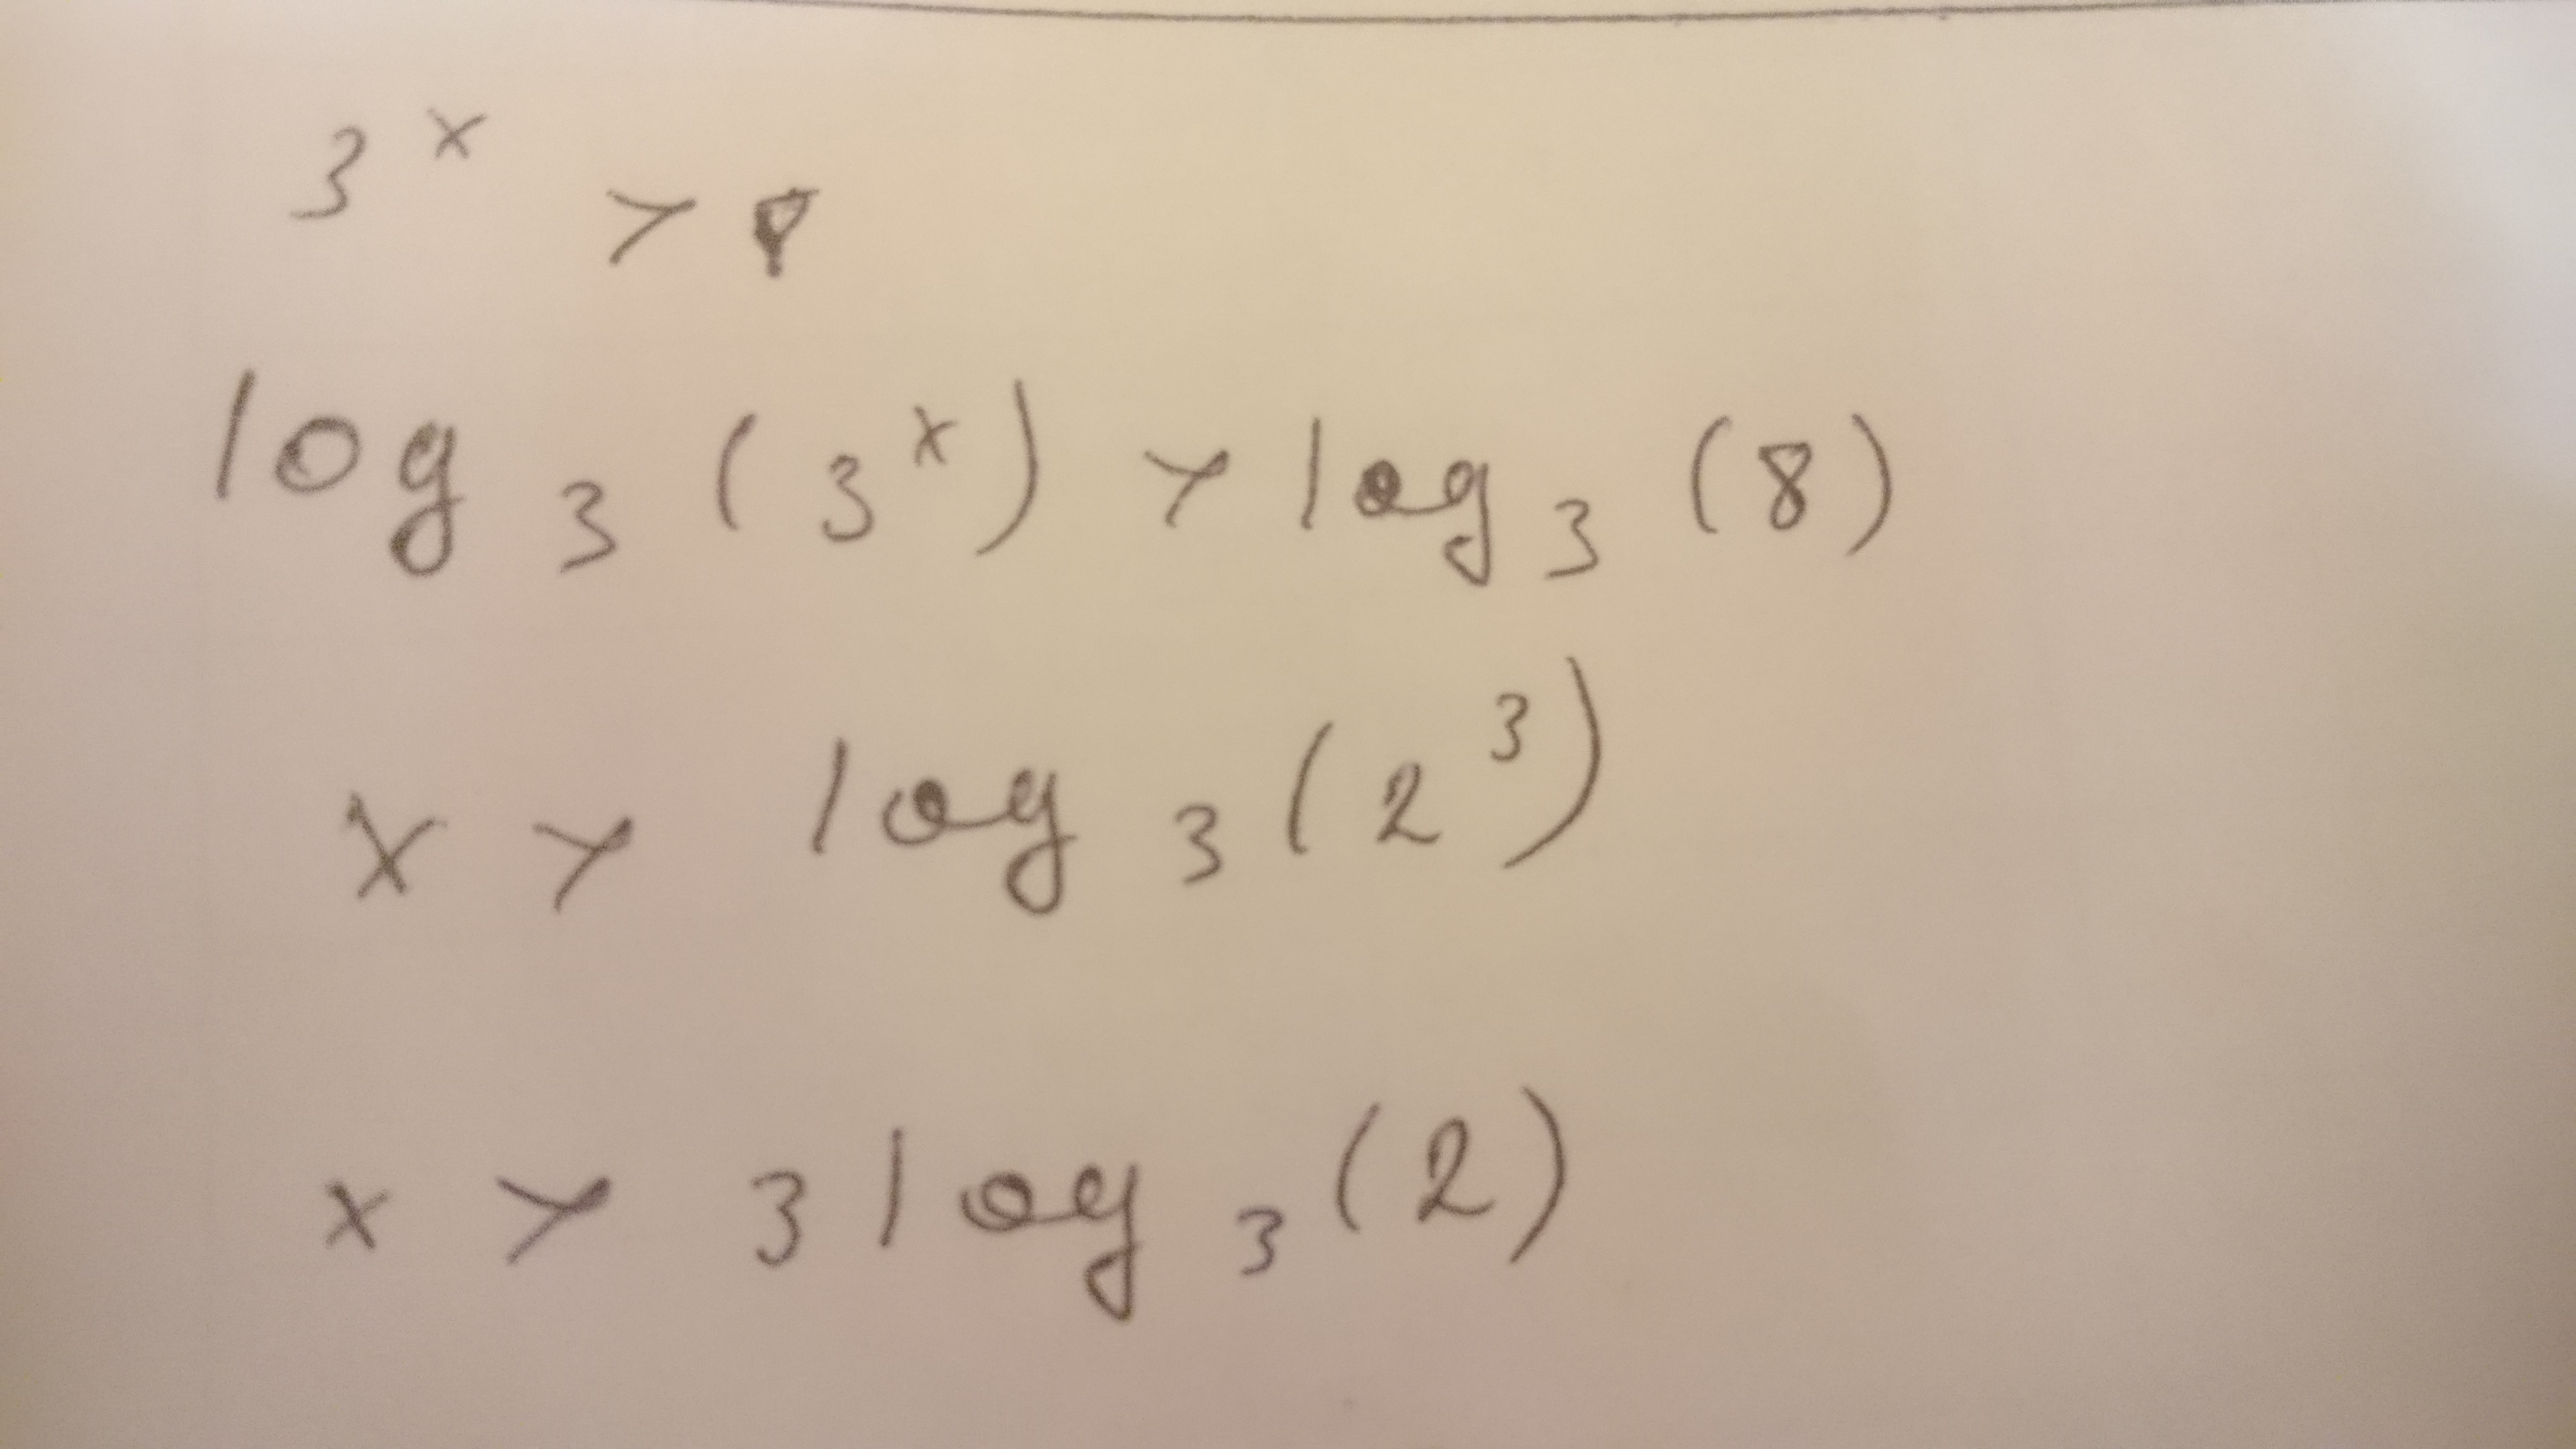 3^x > 8
log_3 (3^x) > log_3 (8)
x > log_3 (2^3)
x > 3 log_3 (2)